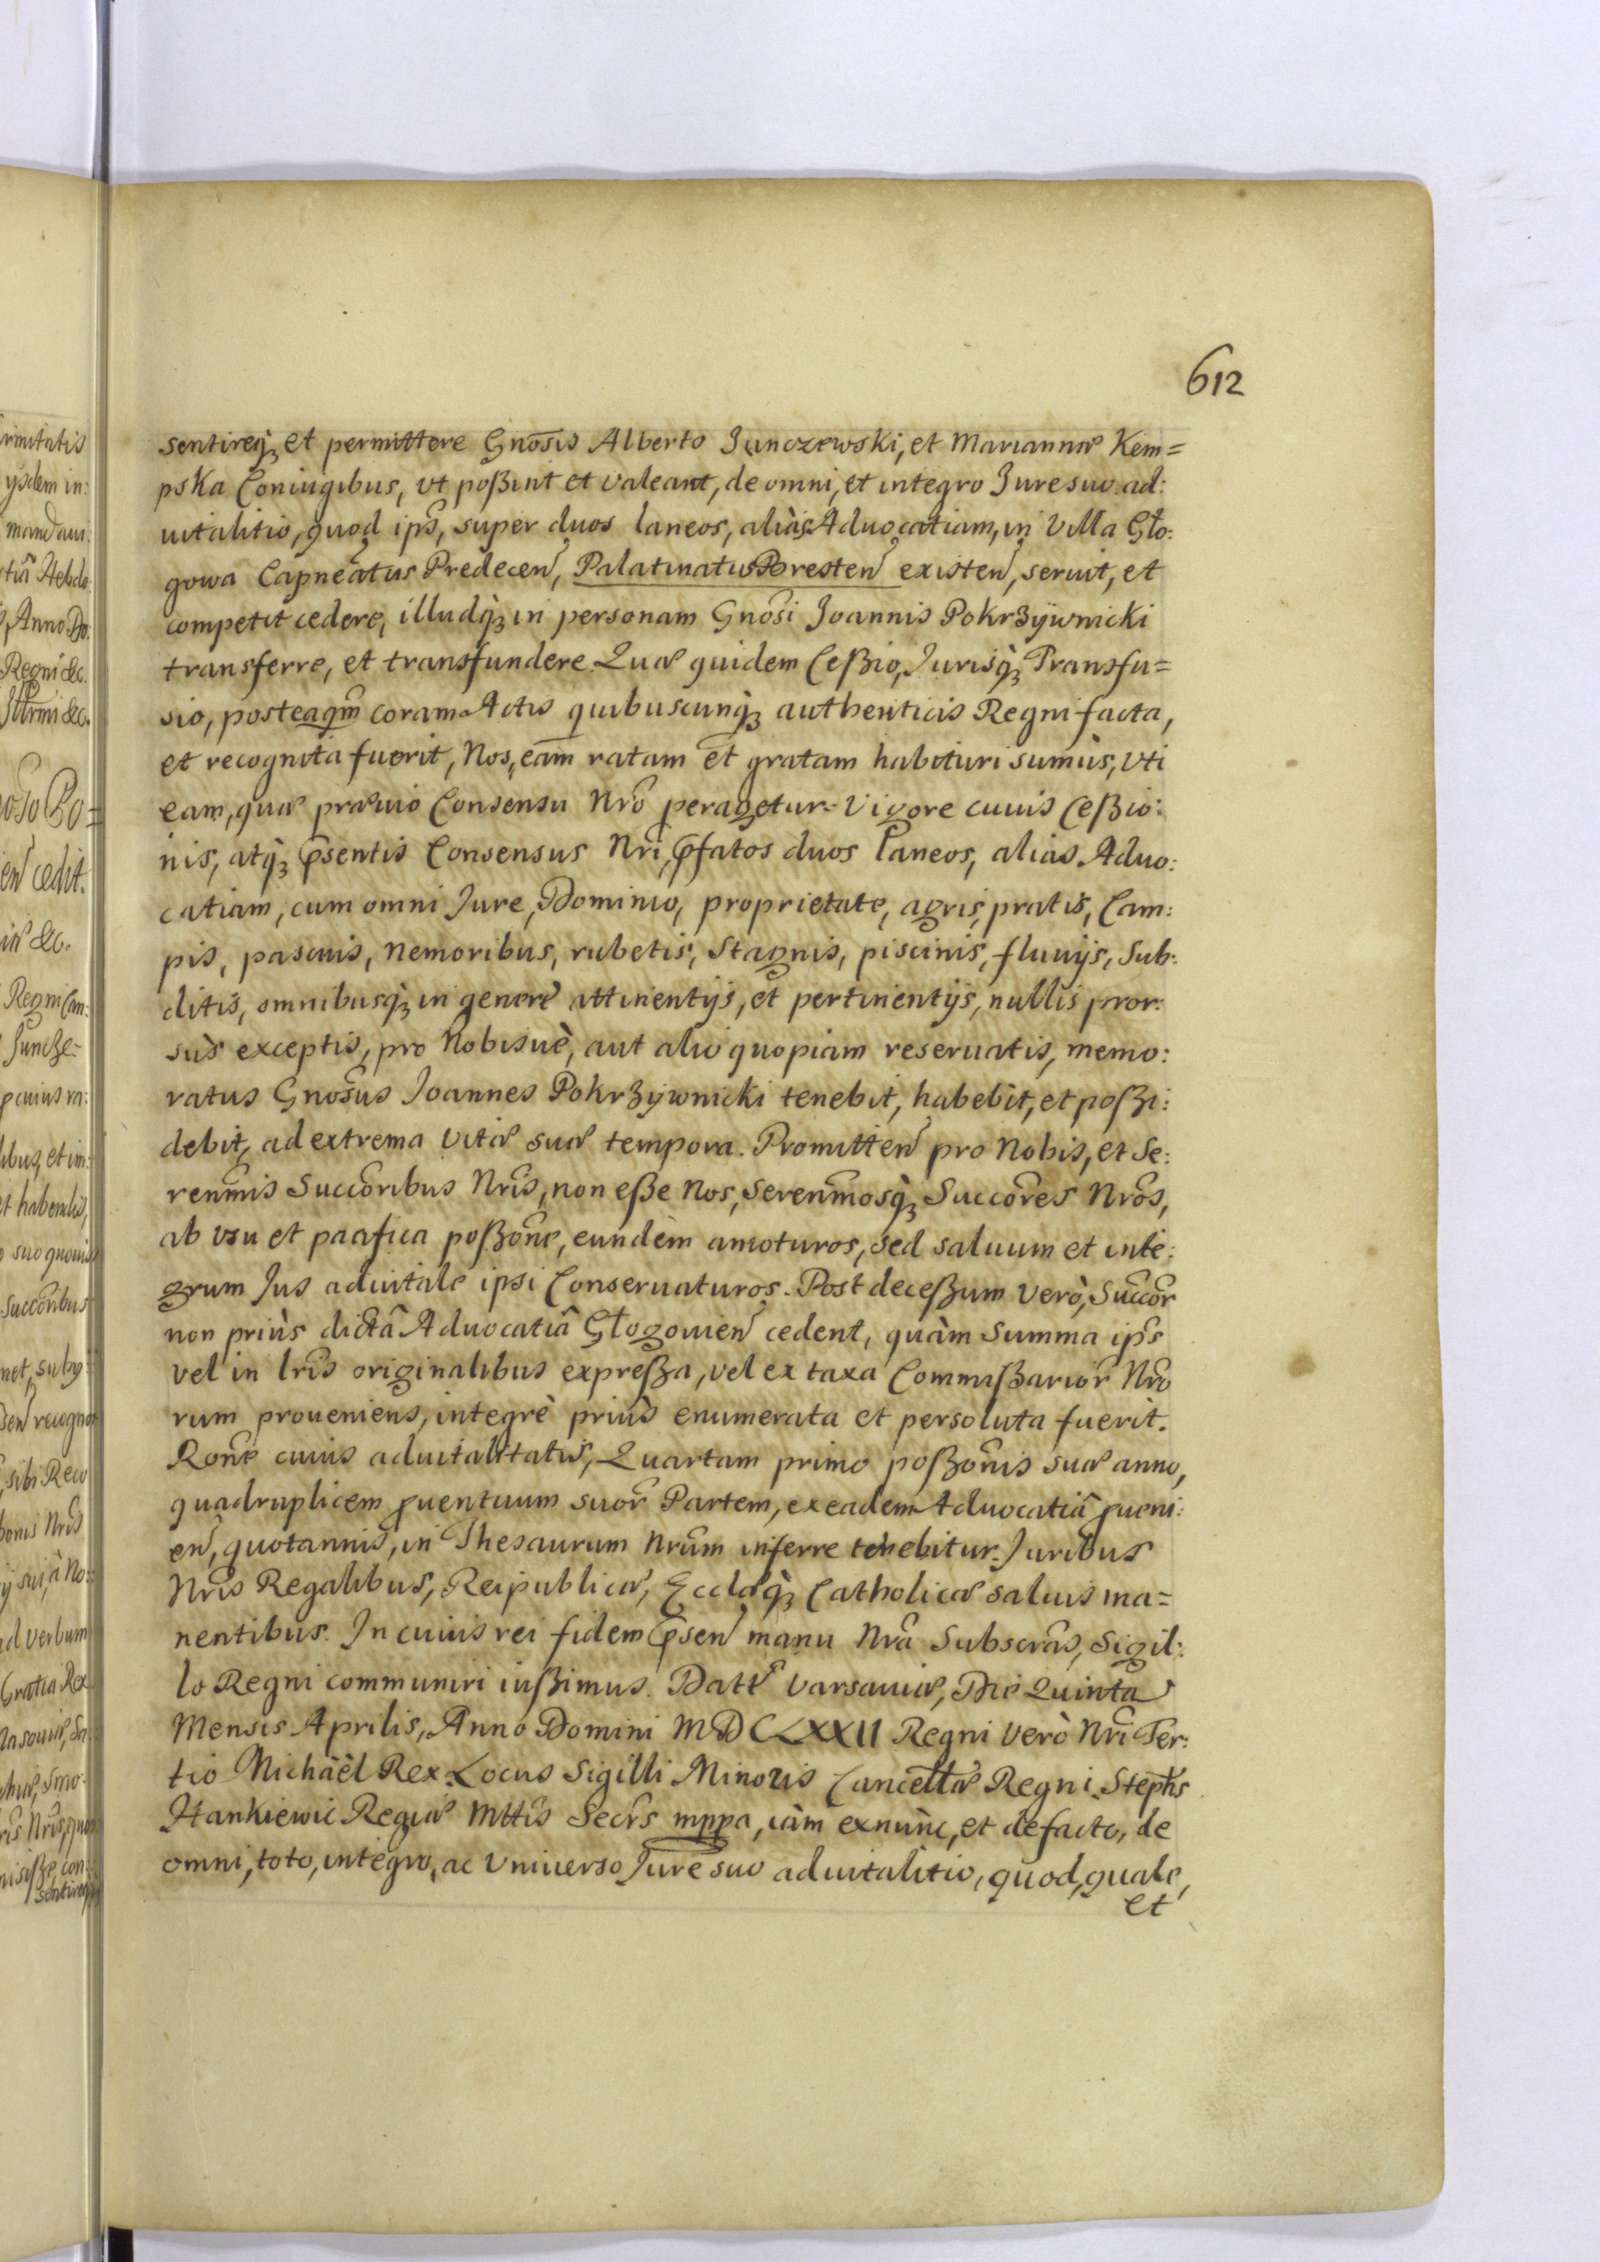 612
sentireq₃ et permittere Gnosis Alberto Junczewski, et Mariannæ Kem=
pska Coniugibus, vt poßint et valeant, de omni, et integro Jure suo ad:
uitalitio, quod ip̃s, super duos laneos, aliàs Aduocatiam, in Villa Gło:
gowa Capneatus Predecen̄, Palatinatus Bresten̄ existen̄, seruit, et
competit cedere, illudq̀₃ in personam Gnosi Joannis Pokrzÿwnicki
transferre, et transfundere. Quæ quidem Ceßio, Jurisq̀₃ Transfu=
sio, posteaqm̃ coram Actis quibuscunq̀₃ authenticis Regni facta,
et recognita fuerit, Nos, eam ratam et gratam habituri sumùs, vti
eam, quæ præuio Consensu Nrõ peragetur. Vigore cuuis Ceßio:
nis, atq̀₃ p̃sentis Consensus Nri̅, p̃fatos duos Laneos, alias Aduo:
catiam, cum omni Jure, Dominio, proprietate, agris, pratis, Cam:
pis, pascuis, nemoribus, rubetis, stagnis, piscinis, fluuijs, Sub:
ditis, omnibusq̀₃ in genere attinentijs, et pertinentijs, nullis pror:
sùs exceptis, pro Nobisuè, aut alio quopiam reseruatis, memo:
ratus Gnosus Joannes Pokrzÿwnicki tenebit, habebit, et poßi:
debit, ad extrema vitæ suæ tempora. Promitten̄ pro Nobis, et Se:
renm̃is Succoribus Nris̃, non eße Nos, Serenm̃osq̀₃ Succores Nros̃,
ab vsu et pacifica poßone, eundem amoturos, sed saluum et inte:
grum Jus aduitale ipsi Conseruaturos. Post deceßum verò, Succor̃
non priùs dictâ Aduocatiâ Głogouien̄ cedent, quàm Summa ip̃s
vel in lris̃ originalibus expreßa, vel ex taxa Commißarior̃ Nro
rum proueniens, integrè priùs enumerata et persoluta fuerit.
Rone cuius aduitalitatis, Quartam primo poßonis suæ anno,
quadruplicem ꝓuentuum suor̃ Partem, ex eadem Aduocatiâ ꝓueni:
en̄, quotannis, in Thesaurum Nrum̃ inferre tenebitur. Juribus
Nris̃ Regalibus, Reipublicæ, Ecclæq̀₃ Catholicæ saluis ma=
nentibus. In cuius rei fidem p̃sen̄ manu Nrã Subscras̃, Sigil:
lo Regni communiri iußimus. Datt̃ Varsauiæ, Die Quinta
Mensis Aprilis, Anno Domini MDCLXXII Regni verò Nri̅ Ter:
tio Michäèl Rex. Locus Sigilli Minoris Cancellæ Regni. Steph̃s
Hankiewic Regiæ Mttis̃ Secrs̃ mppa, iàm exnùnc, et defacto, de
omni, toto, integro, ac vniuerso Jure suo aduitalitio, quod, quale,
et